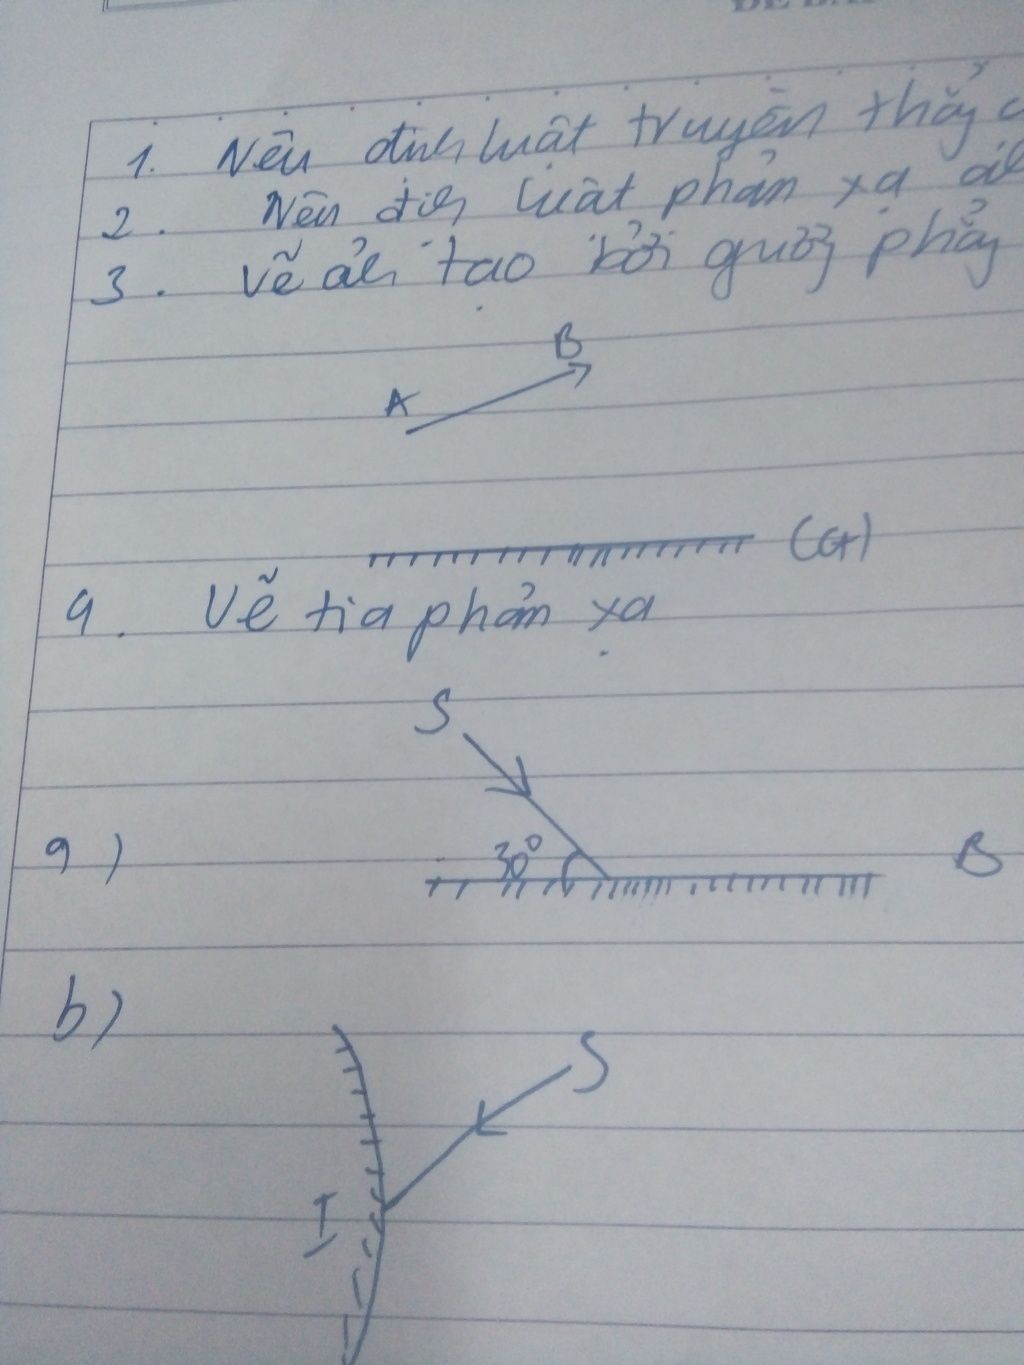 ĐỀ BÀI
1. Nêu định luật truyền thẳng
2. Nêu định luật phản xạ
3. Vẽ ảnh tạo bởi gương phẳng
B
A
(G)
4. Vẽ tia phản xạ
S
a)
30°
B
b)
S
I